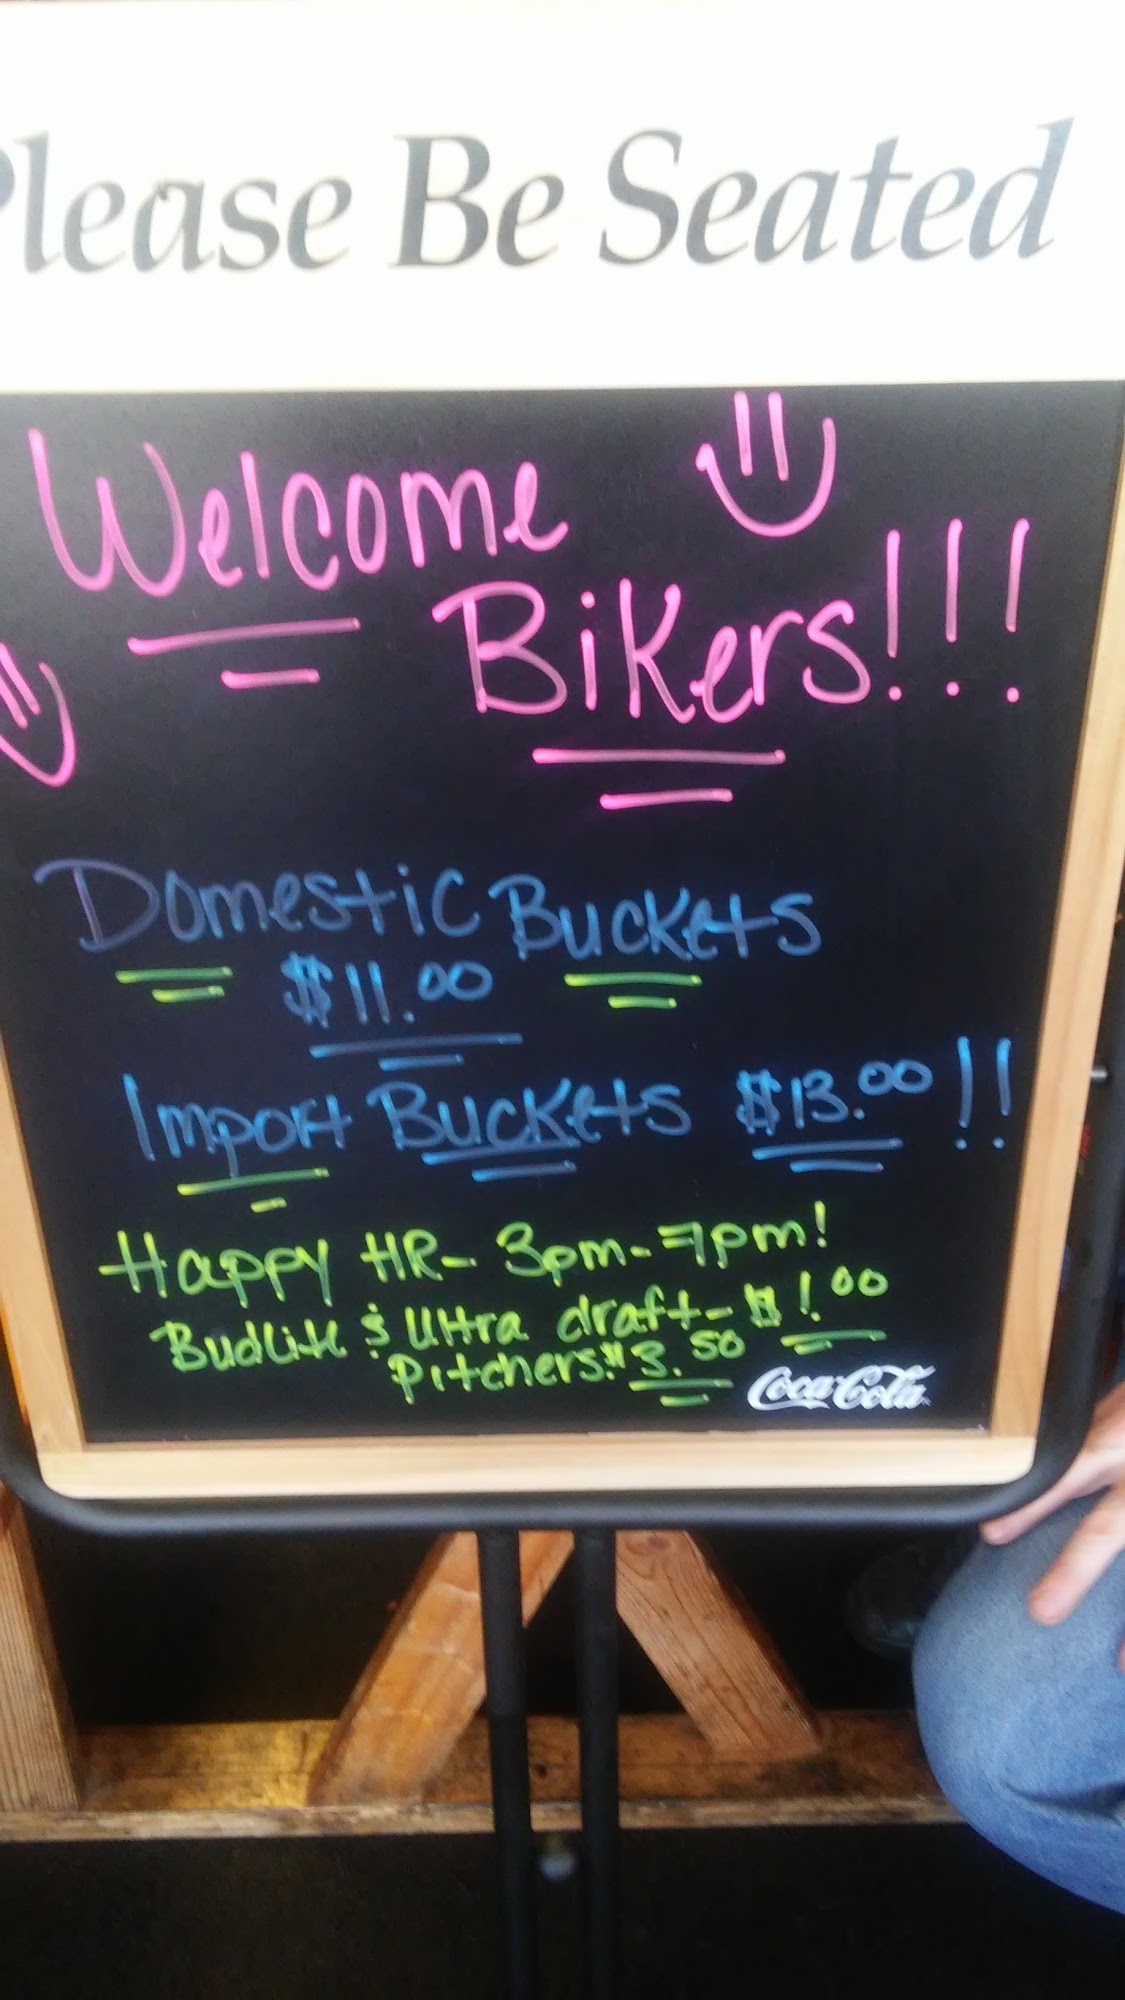 Please Be Seated
Welcome
Bikers!!!
Domestic Buckets
$11.00
Import Buckets $13.00!!
Happy HR- 3pm-7pm!
BudLite & Ultra draft-$1.00
Pitchers $3.50
Coca-Cola